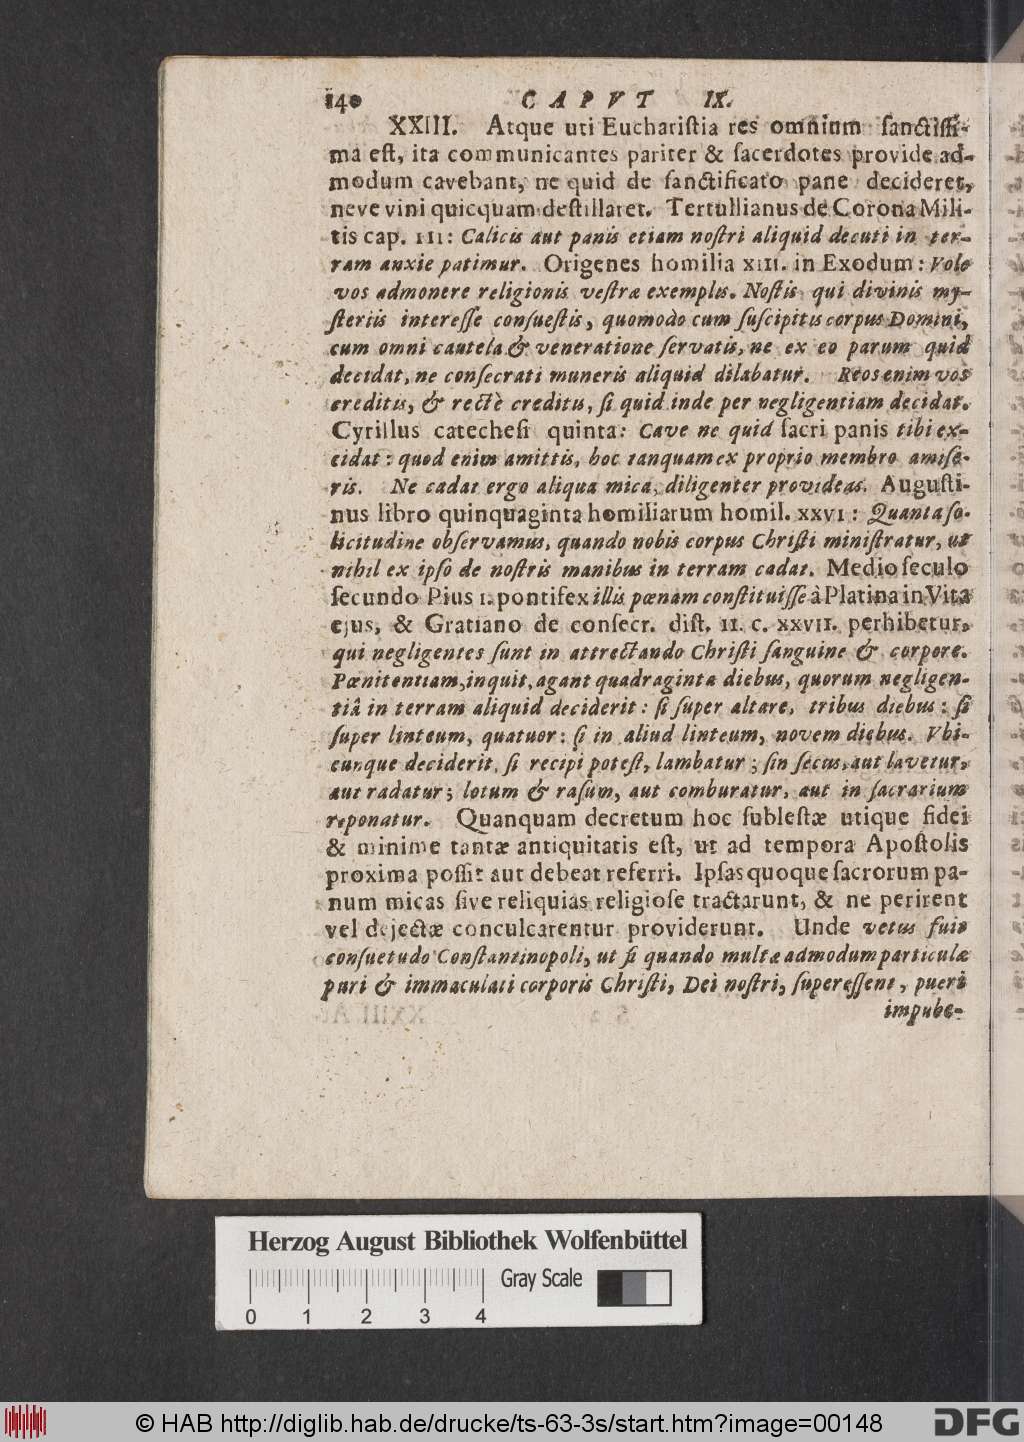 140 CAPVT IX.
XXIII. Atque uti Euchariſtia res omnium ſanctiſſi-
ma eſt, ita communicantes pariter & ſacerdotes provide ad-
modum cavebant, ne quid de ſanctificato pane decideret,
neve vini quicquam deſtillaret. Tertullianus de Corona Mili-
tis cap. III: Calicis aut panis etiam noſtri aliquid decuti in ter-
ram anxie patimur. Origenes homilia XIII. in Exodum: Volo
vos admonere religionis veſtræ exemplis. Noſtis qui divinis my-
ſteriis intereſſe conſueſtis, quomodo cum ſuſcipitis corpus Domini,
cum omni cautela & veneratione ſervatis, ne ex eo parum quid
decidat, ne conſecrati muneris aliquid dilabatur. Reos enim vos
creditis, & rectè creditis, ſi quid inde per negligentiam decidat.
Cyrillus catecheſi quinta: Cave ne quid ſacri panis tibi ex-
cidat: quod enim amittis, hoc tanquam ex proprio membro amiſe-
ris. Ne cadat ergo aliqua mica, diligenter provideas. Auguſti-
nus libro quinquaginta homiliarum homil. XXVI: Quanta ſo-
licitudine obſervamus, quando nobis corpus Chriſti miniſtratur, ut
nihil ex ipſo de noſtris manibus in terram cadat. Medio ſeculo
ſecundo Pius I. pontifex illis pœnam conſtituiſſe à Platina in Vita
ejus, & Gratiano de conſecr. diſt. II. c. XXVII. perhibetur,
qui negligentes ſunt in attrectando Chriſti ſanguine & corpore.
Pœnitentiam, inquit, agant quadraginta diebus, quorum negligen-
tiâ in terram aliquid deciderit: ſi ſuper altare, tribus diebus: ſi
ſuper linteum, quatuor: ſi in aliud linteum, novem diebus. Vbi-
cunque deciderit, ſi recipi poteſt, lambatur; ſin ſecus, aut lavetur,
aut radatur; lotum & raſum, aut comburatur, aut in ſacrarium
reponatur. Quanquam decretum hoc ſubleſtæ utique fidei
& minime tantæ antiquitatis eſt, ut ad tempora Apoſtolis
proxima poſſit aut debeat referri. Ipſas quoque ſacrorum pa-
num micas ſive reliquias religioſe tractarunt, & ne perirent
vel dejectæ conculcarentur providerunt. Unde vetus fuit
conſuetudo Conſtantinopoli, ut ſi quando multæ admodum particulæ
puri & immaculati corporis Chriſti, Dei noſtri, ſupereſſent, pueri
impube-
Herzog August Bibliothek Wolfenbüttel
Gray Scale
0 1 2 3 4
© HAB http://diglib.hab.de/drucke/ts-63-3s/start.htm?image=00148
DFG